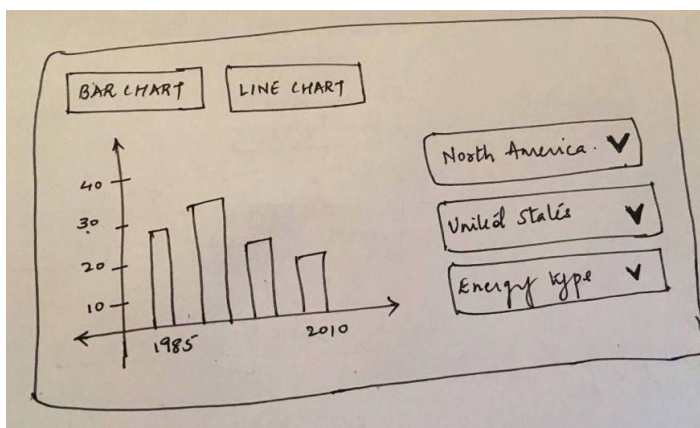 BAR CHART
LINE CHART
40
30
20
10
1985
2010
North America.
United States
Energy type